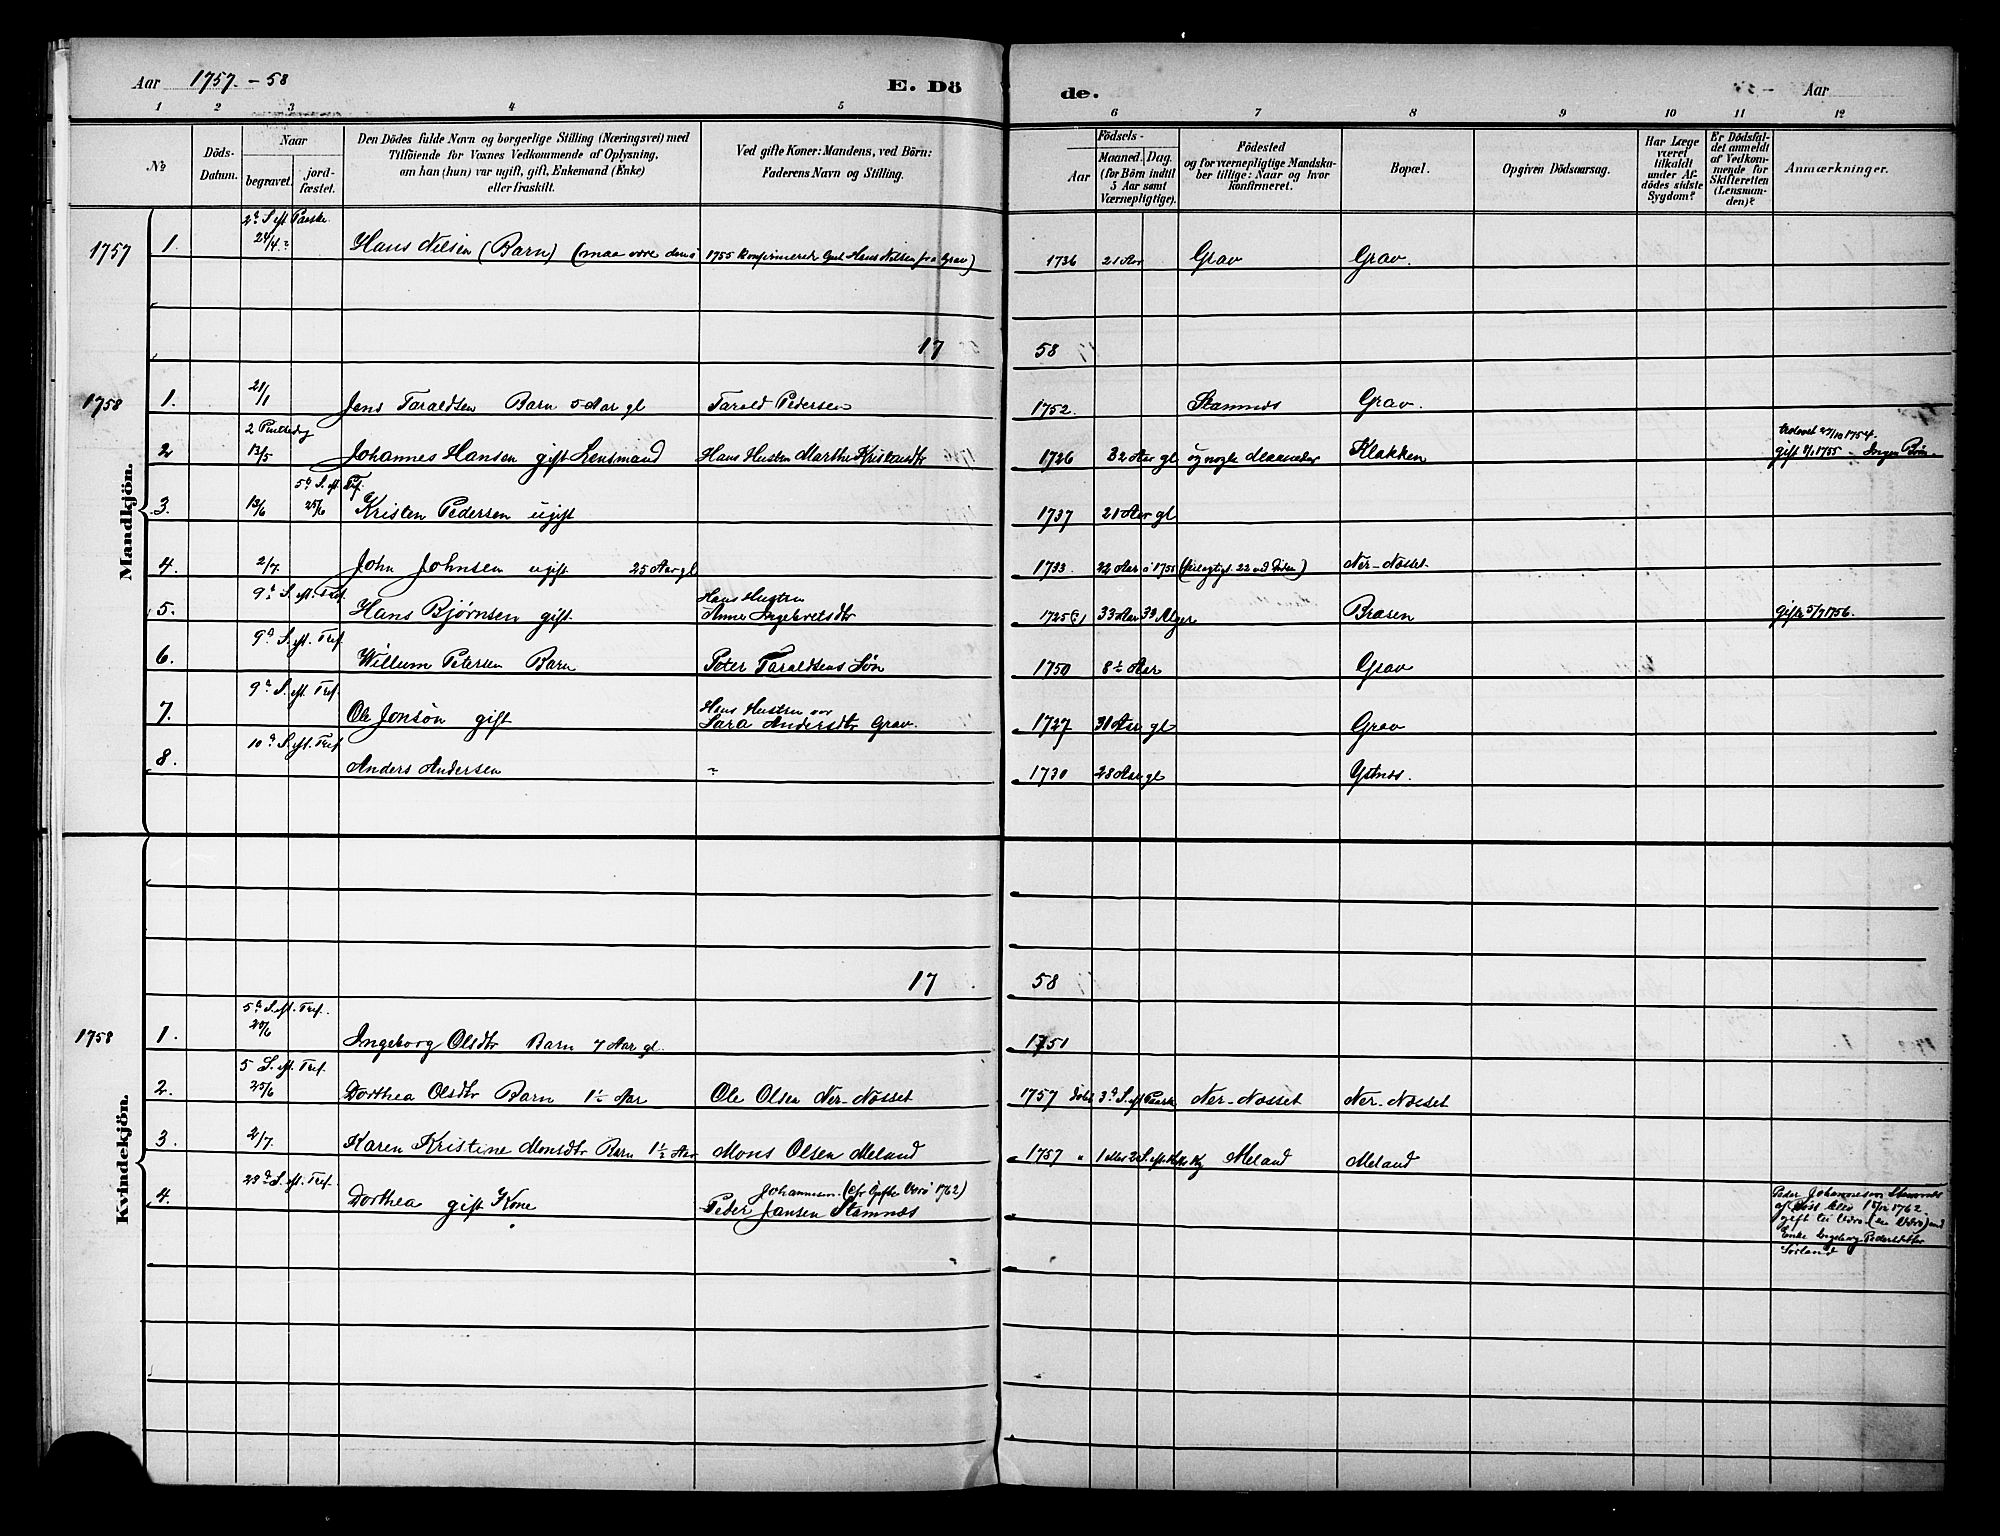 Aar 1757.-58
E. Döde.
Aar
1 2 3 4 5 6 7 8 9 10 11 12
No
Döds-Datum.
Naar
begravet.
jord-fæstet.
Den Dödes fulde Navn og borgerlige Stilling (Næringsvei) med
Tilföiende for Voxnes Vedkommende af Oplysning,
om han (hun) var ugift, gift, Enkemand (Enke)
eller fraskilt.
Ved gifte Koner: Mandens, ved Börn:
Faderens Navn og Stilling.
Födsels-
Aar
Maaned. Dag.
(for Börn indtil
5 Aar samt
Værnepligtige).
Födested
og for værnepligtige Mandska-
ber tillige: Naar og hvor
konfirmeret.
Bopæl.
Opgiven Dödsaarsag.
Har Læge
været
tilkaldt
under Af-
dödes sidste
Sygdom?
Er Dödsfal-
det anmeldt
af Vedkom-
mende for
Skifteretten
(Lensman-
den)?
Anmærkninger.
Mandkjön.
1757 1. 2d S. eft Paaske 24/4? Hans Nilsen (Barn) (maa være den i 1755 konfirmerede Hans Nilsen fra Grav) 1736 21 Aar Grav Grav.
1758
1758 1. 21/1 Jens Taraldsen Barn 5 Aar gl Tarald Pedersen 1752. Stamnes Grav.
2 2 Pintsedag 13/5 Johannes Hansen gift Lensmand Hans Hustru Marthe Kristensdtr 1726 32 Aar gl og nogle Maaneder Klakken trolovet 27/10 1754. gift 1755 - Ingen Børn
3. 13/6 5d S. eft. Tref. 25/6 Kristen Pedersen ugift 1737 21 Aar gl
4. 2/7. John Johnsen ugift 25 Aar gl 1733. 22 Aar i 1755 Ner-Nosset.
5. 9d S. eft. Tref. Hans Bjørnsen gift. Hans Hustru Anne Ingebretsdtr 1725(?) 33 Aar 39 Uger Brasen gift 5/7 1756.
6. 9d S. eft. Tref. Willum Petersen Barn Peter Taraldsens Søn 1750 8½ Aar Grav
7. 9d S. eft. Tref. Ole Jonsøn gift Hans Hustru var Sara Andersdtr Grav. 1727 31 Aar gl Grav
8. 10d S. eft. Tref. Anders Andersen 1730 28 Aar gl Ystnes.
Kvindekjön.
1758
1758 1. 5d S. eft. Tref. 25/6 Ingeborg Olsdtr Barn 7 Aar gl. 1751
2. 5 S. eft. Tref. 25/6 Dorthea Olsdtr Barn 1½ Aar Ole Olsen Ner-Nosset 1757 døbt 3d S. eft Paaske Ner-Nosset Ner-Nosset
3. 2/7. Karen Kristine Monsdtr Barn 1½ Aar Mons Olsen Meland 1757 " Meland Meland
4. 23d S. eft. Tref. Dorthea gift Kone Johannesen (cfr Gifte Værø 1762)
Peder Jansen Stamnes
Peder Johannesen Stamnes
af 1762
gift til Værø (i Værø) med
Enke Ingeborg Pedersdatter
Sørland